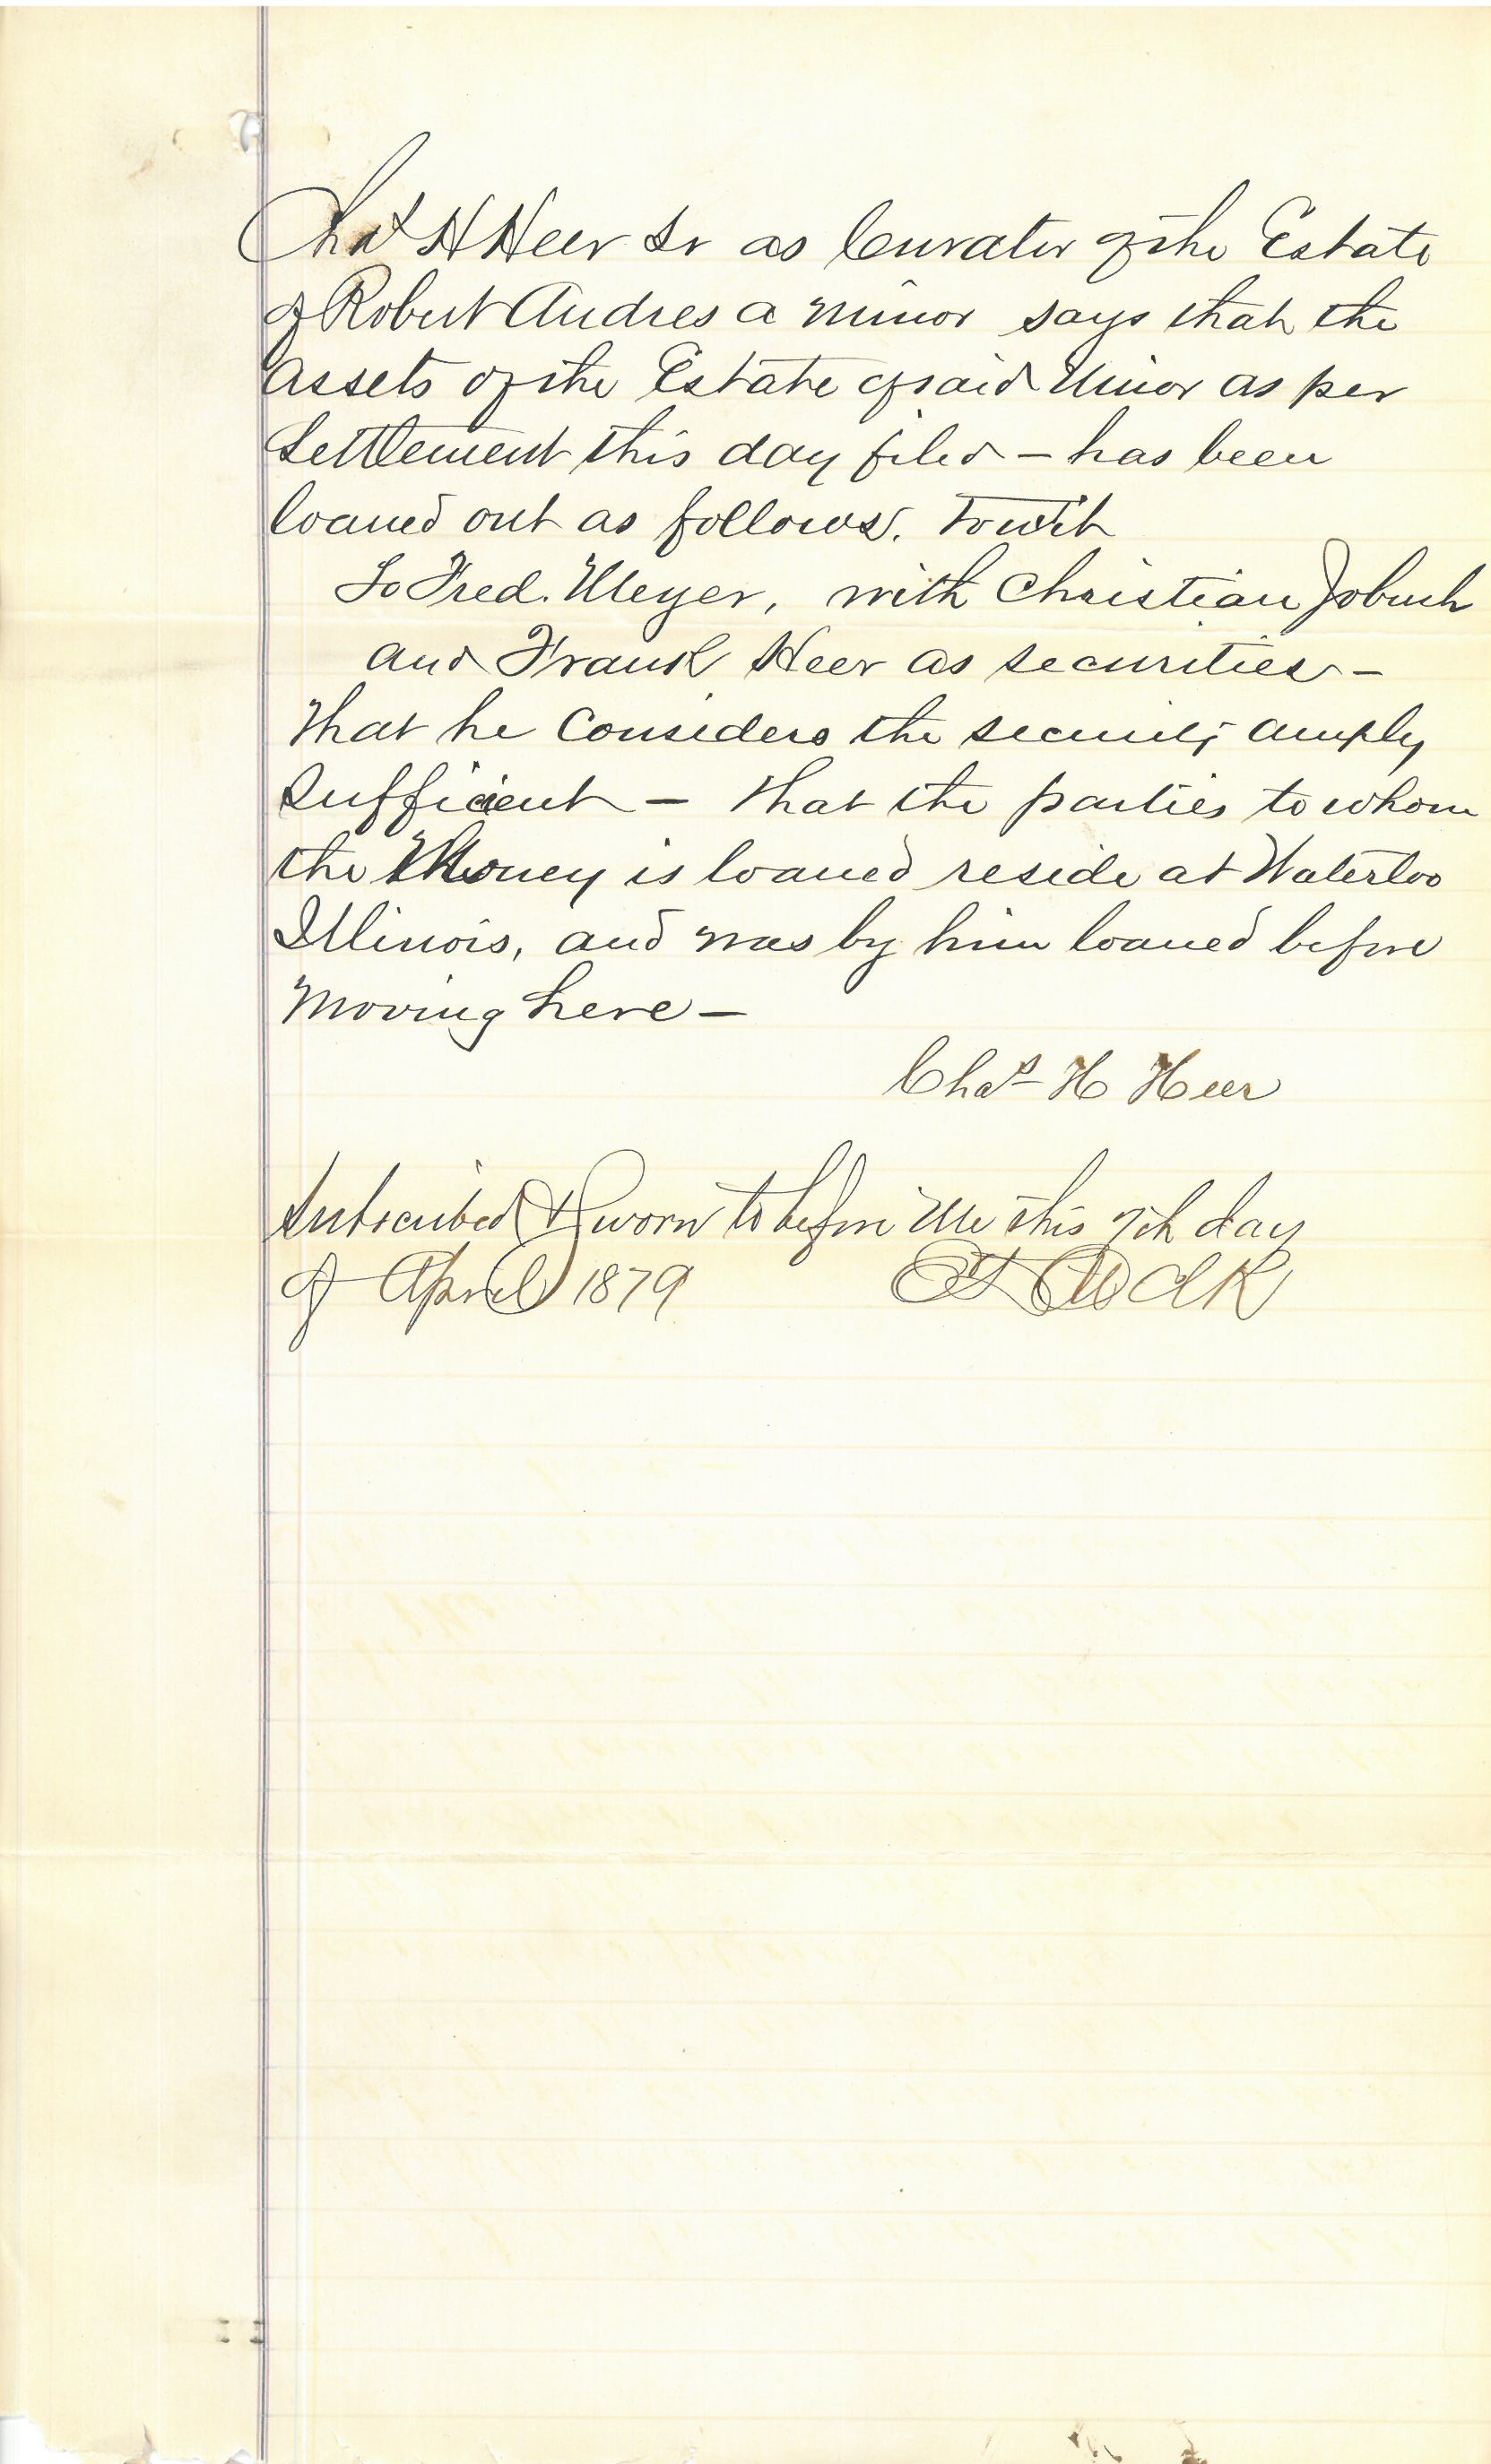 Chas H Heer Sr as Curator of the Estate
of Robert Andres a minor says that the
Assets of the Estate of said Minor as per
Settlement this day filed – has been
loaned out as follows. Towit
To Fred. Meyer, with Christian Jobush
and Frank Heer as securities –
That he Considers the security amply
Sufficient – That the parties to whom
the Money is loaned reside at Waterloo
Illinois, and was by him loaned before
Moving here –
Chas H Heer
Subscribed & Sworn to before Me this 7th day
of April 1879